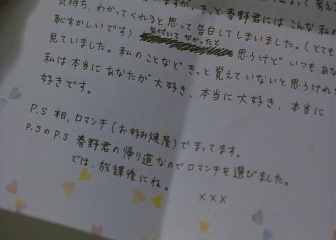 気持ち、わかってくれると思って告白してしまいました。(とても
恥ずかしいです) 気付いてなかったと思うけど いつもあな
見ていました。私のことなど きっと覚えていないと思うけれど
私は本当に あなたが 大好き、本当に 大好き、本当に
好きです。
P.S 相、ロマンチ(お好み焼屋)でまってます。
P.SのP.S 春野君の帰り道なのでロマンチを選びました。
では、放課後にね。
×××